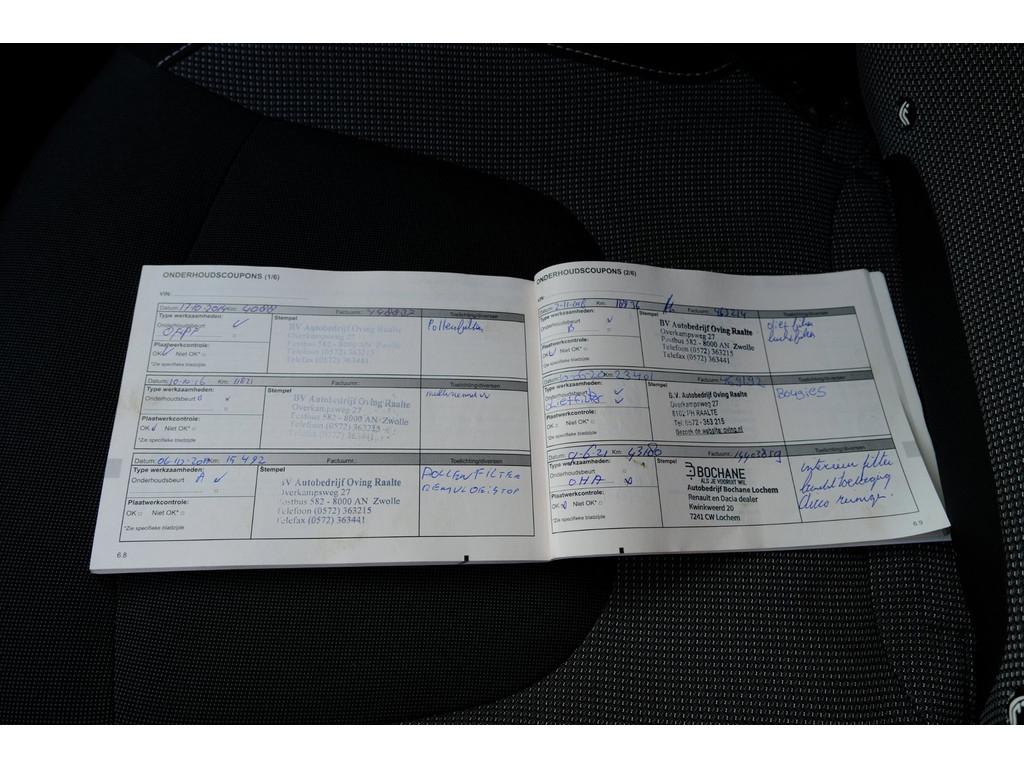 ONDERHOUDSCOUPONS (1/6)
VIN:
Datum: Km: 4088 Factuurnr.: Toelichting/diversen
Type werkzaamheden: Stempel
Onderhoudsbeurt ✓
BV Autobedrijf Oving Raalte
Overkampsweg 27
Postbus 582 - 8000 AN Zwolle
Telefoon (0572) 363215
Telefax (0572) 363441
Pollenfilter
Plaatwerkcontrole:
OK ✓ Niet OK*
*Zie specifieke bladzijde
Datum: 10-10-16 Km: 11821 Factuurnr.: Toelichting/diversen
Type werkzaamheden: Stempel
Onderhoudsbeurt B
BV Autobedrijf Oving Raalte
Overkampsweg 27
Postbus 582 - 8000 AN Zwolle
Telefoon (0572) 363215
Telefax (0572) 363441
Plaatwerkcontrole:
OK ✓ Niet OK*
*Zie specifieke bladzijde
Datum: Km: 15492 Factuurnr.: Toelichting/diversen
Type werkzaamheden: Stempel
Onderhoudsbeurt A ✓
BV Autobedrijf Oving Raalte
Overkampsweg 27
Postbus 582 - 8000 AN Zwolle
Telefoon (0572) 363215
Telefax (0572) 363441
POLLENFILTER
REMVLOEISTOF
Plaatwerkcontrole:
OK Niet OK*
*Zie specifieke bladzijde
6.8
ONDERHOUDSCOUPONS (2/6)
VIN:
Datum: Km: Factuurnr.: Toelichting/diversen
Type werkzaamheden: Stempel
Onderhoudsbeurt
B
BV Autobedrijf Oving Raalte
Overkampsweg 27
Postbus 582 - 8000 AN Zwolle
Telefoon (0572) 363215
Telefax (0572) 363441
oliefilter
luchtfilter
Plaatwerkcontrole:
OK ✓ Niet OK*
*Zie specifieke bladzijde
Datum: Km: 23401 Factuurnr.: Toelichting/diversen
Type werkzaamheden: Stempel
Onderhoudsbeurt ✓
OLIEFILTER ✓
B.V. Autobedrijf Oving Raalte
Overkampsweg 27
8102 PH RAALTE
Tel: 0572 - 363 215
Bezoek de website: oving.nl
Bougies
Plaatwerkcontrole:
OK Niet OK*
*Zie specifieke bladzijde
Datum: 9-6-21 Km: 43180 Factuurnr.: Toelichting/diversen
Type werkzaamheden: Stempel
Onderhoudsbeurt
OHA
BOCHANE
ALS JE VOORUIT WIL
Autobedrijf Bochane Lochem
Renault en Dacia dealer
Kwinkweerd 20
7241 CW Lochem
interieur filter
Airco reiniger
Plaatwerkcontrole:
OK Niet OK*
*Zie specifieke bladzijde
6.9